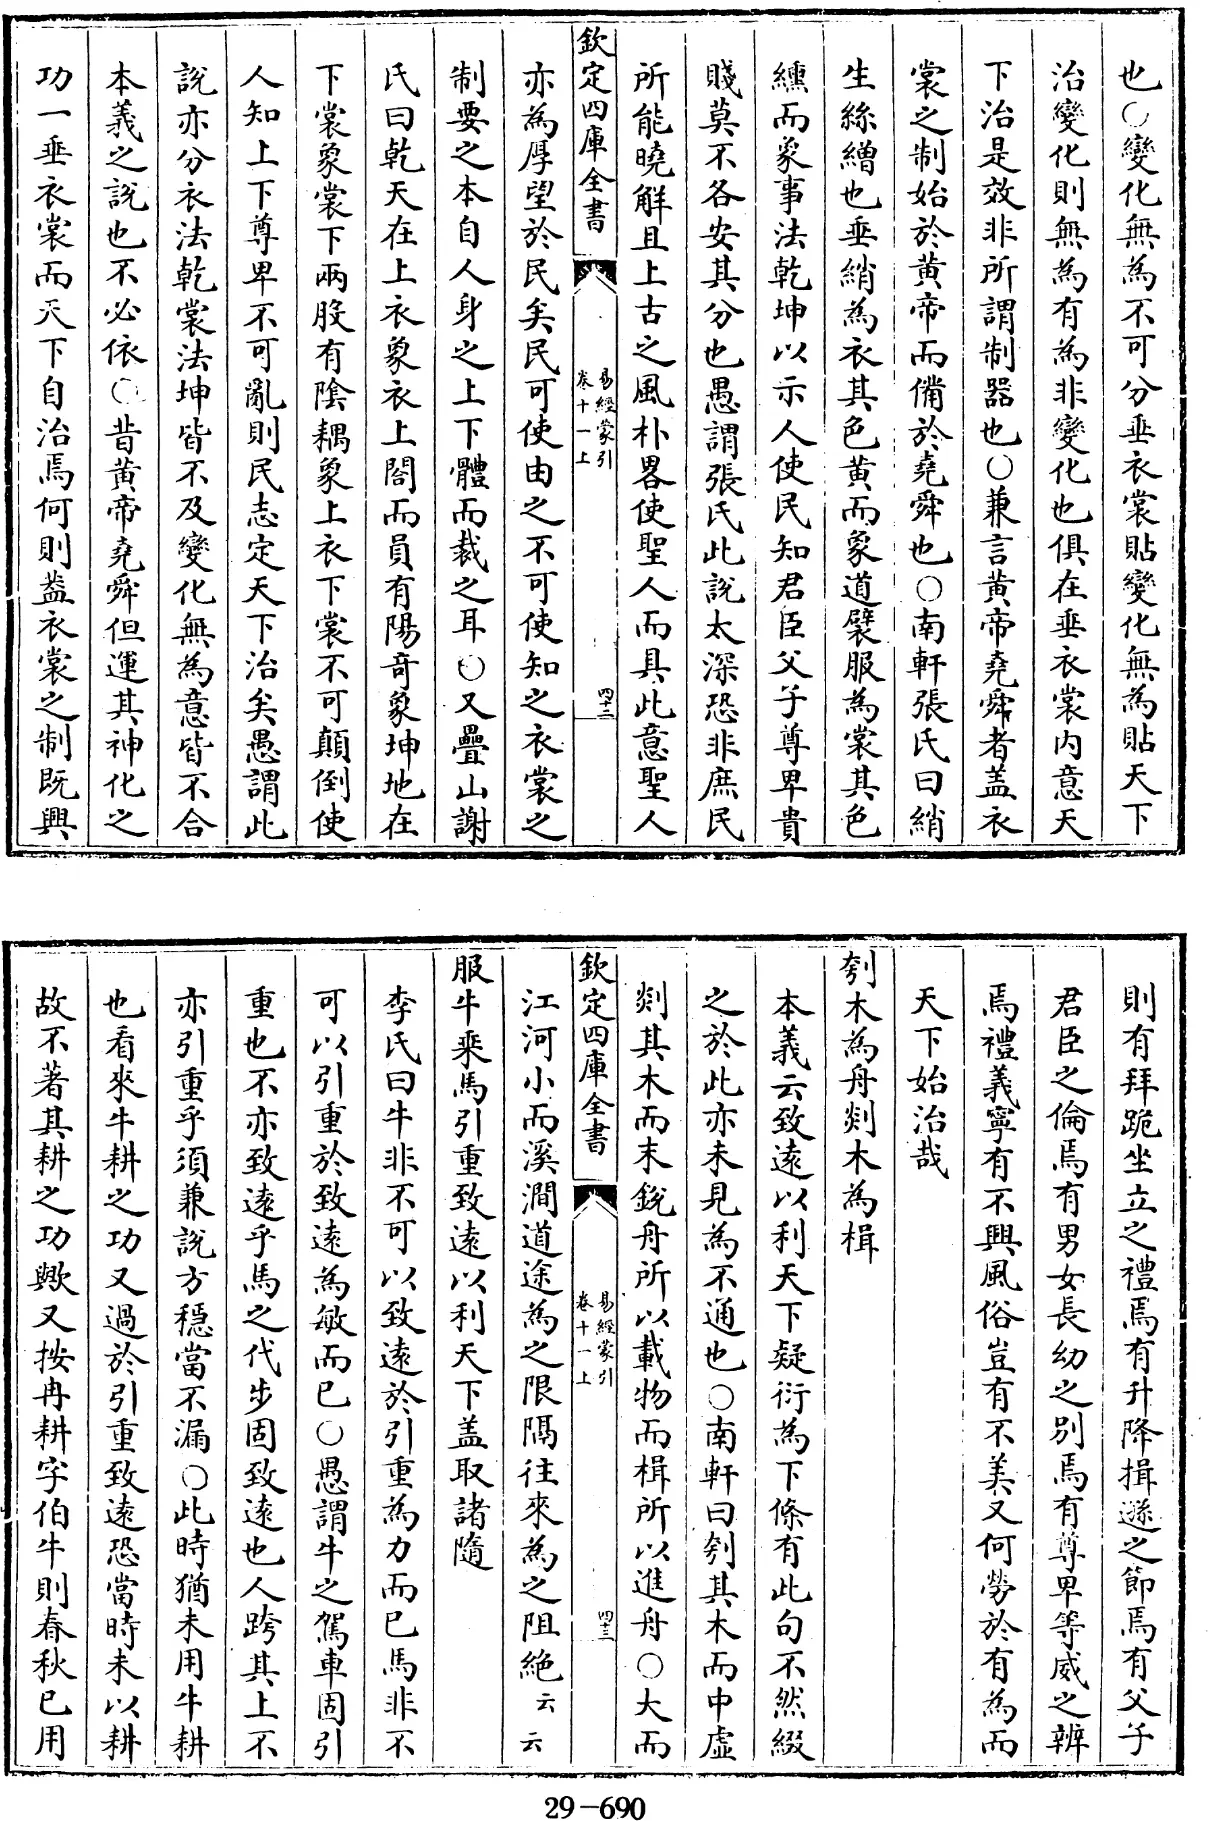 也○變化無為不可分垂衣裳貼變化無為貼天下
治變化則無為有為非變化也俱在垂衣裳内意天
下治是效非所謂制器也○兼言黄帝堯舜者盖衣
裳之制始於黄帝而備於堯舜也○南軒張氏曰綃
生絲繒也垂綃為衣其色黄而象道襞服為裳其色
纁而象事法乾坤以示人使民知君臣父子尊卑貴
賤莫不各安其分也愚謂張氏此説太深恐非庶民
所能曉解且上古之風朴畧使聖人而具此意聖人
欽定四庫全書
易經蒙引
卷十一上
四十二
亦為厚望於民矣民可使由之不可使知之衣裳之
制要之本自人身之上下體而裁之耳○又疊山謝
氏曰乾天在上衣象衣上闊而員有陽奇象坤地在
下裳象裳下兩股有陰耦象上衣下裳不可顛倒使
人知上下尊卑不可亂則民志定天下治矣愚謂此
説亦分衣法乾裳法坤皆不及變化無為意皆不合
本義之説也不必依○昔黄帝堯舜但運其神化之
功一垂衣裳而天下自治焉何則葢衣裳之制既興
則有拜跪坐立之禮焉有升降揖遜之節焉有父子
君臣之倫焉有男女長幼之别焉有尊卑等威之辨
焉禮義寧有不興風俗豈有不美又何勞於有為而
天下始治哉
刳木為舟剡木為楫
本義云致遠以利天下疑衍為下條有此句不然綴
之於此亦未見為不通也○南軒曰刳其木而中虚
剡其木而末鋭舟所以載物而楫所以進舟○大而
欽定四庫全書
易經蒙引
卷十一上
四十三
江河小而溪澗道途為之限隔往來為之阻絶云云
服牛乘馬引重致遠以利天下盖取諸隨
李氏曰牛非不可以致遠於引重為力而已馬非不
可以引重於致遠為敏而已○愚謂牛之駕車固引
重也不亦致遠乎馬之代步固致遠也人跨其上不
亦引重乎須兼説方穏當不漏○此時猶未用牛耕
也看來牛耕之功又過於引重致遠恐當時未以耕
故不著其耕之功歟又按冉耕字伯牛則春秋已用
29-690